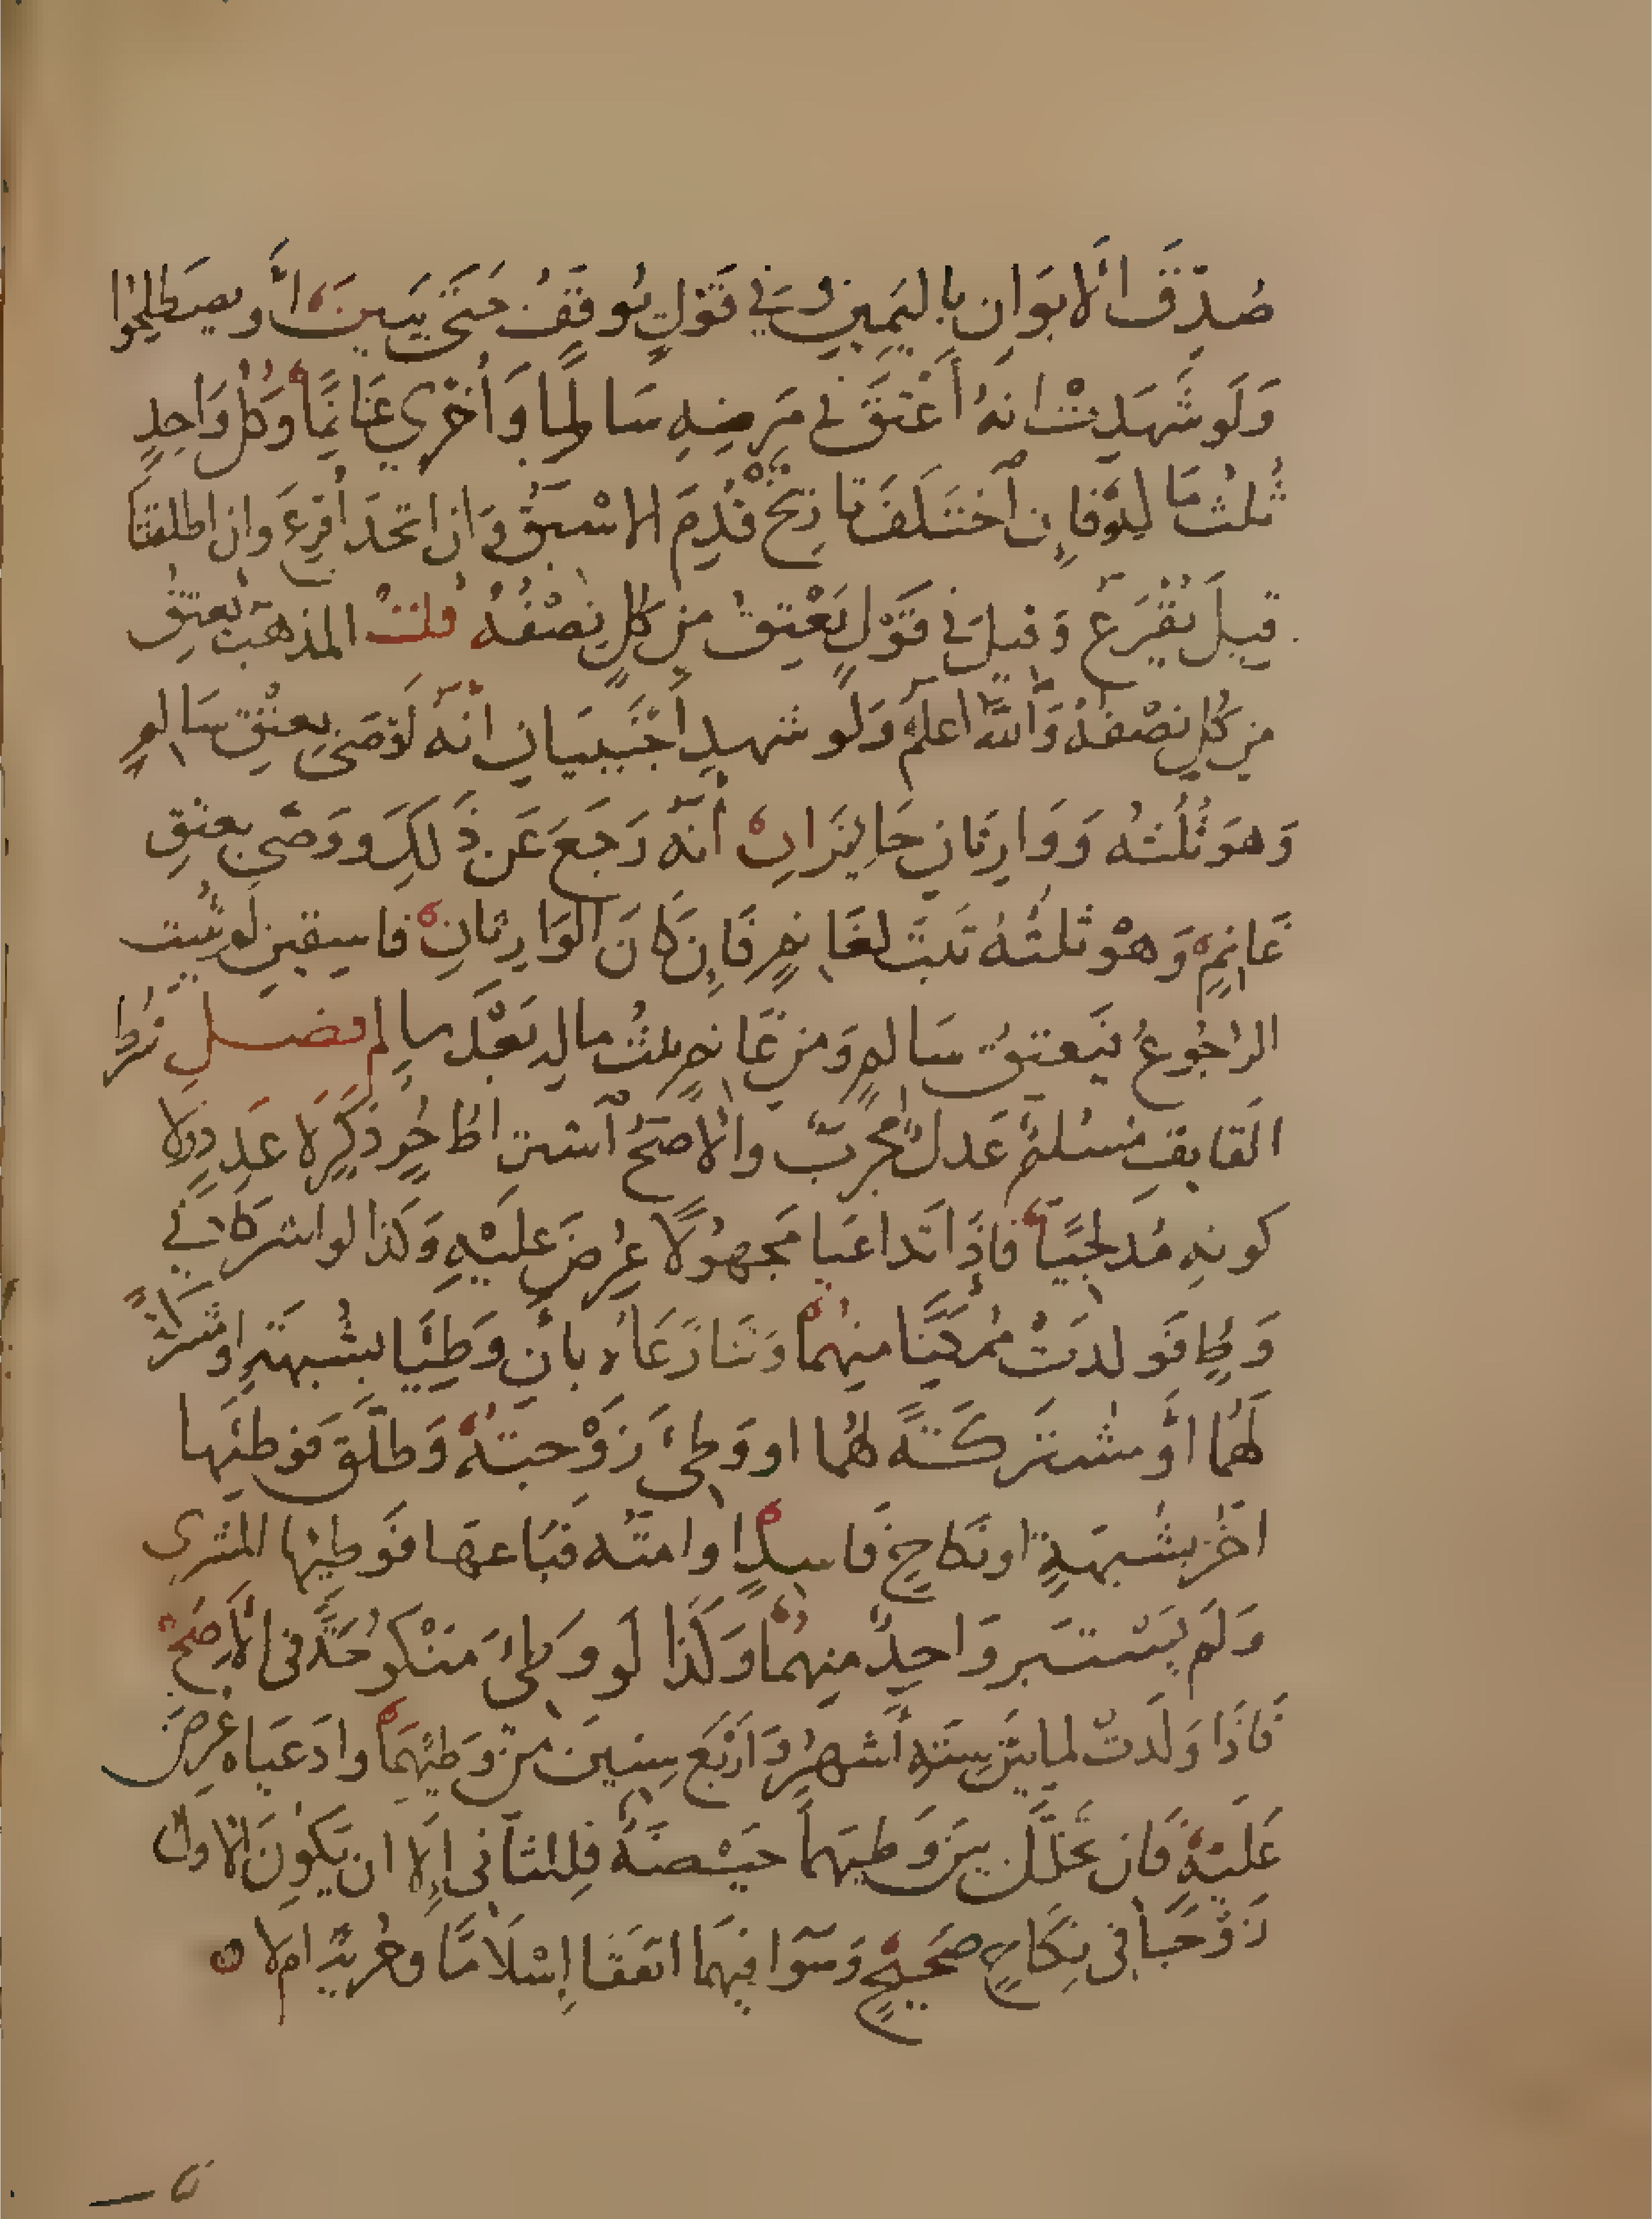 صُدِّقَ الَابوَانِ بِاليَمِينِ وَفي قَوْلٍ يُوقَفُ حَتى يَبَينَ اَو يصَطلِحُوا
وَلَو شَهِدَتْ انهُ أعْتقَ في مَرضِهِ سَالِمًا وَأُخْرَي غَانِمًا وَكل وَاحِدٍ
ثلثُ مَا لِهِ فاِن اختَلَفَ تارِيخٌ قُدِمَ الاسْبَقُ وَان اتحَدَ اُقرِعَ وان اطلقتا
قيِلَ يُقْرَعُ وَقيلَ في قَوْلٍ يَعْتِقُ مِن كلٍ نِصْفُهُ قلتُ المذهبُ يعتِقُ
مِن كُلٍ نصْفُهُ وَاللهُ اَعلمُ وَلَو شهدِ أَجْنَبِيَانِ انهُ اَوْصَى بِعتقِ سَالمٍ
وَهوَ ثُلُثهُ وَوَارِثانِ حَايزَانِ أنهُ رَجَعَ عَن ذَلِكَ وَوَصَّى بِعتقِ
غَانِمٍ وَهوَ ثلثُهُ ثَبتَ لغَانمٍ فَاِن كَانَ الوَارِثانِ فاسِقينِ لَم يثبت
الرُجُوعُ فيَعتقُ سَالمٍ وَمِن غَانمٍ ثلثُ مالِهِ بَعْدَ سالِم فصل شرط
القايفِ مُسلمٌ عَدلٌ مجرِّبٌ والاَصحُّ اشتراطُ حُرٍ ذكَرٍ لَا عدَدٍ ولا
كونهِ مُدلجِيًا فاِذَا تداعَيا مَجهُولًا عُرِضَ عَليْهِ وَكذا لو اشتركا في
وَطئٍ فَولدَتْ مُمكِنًا مِنهُما وَتَنازَعَاهُ بانْ وَطِيَا بشُبهَةٍ اومشتركةً
لَهُمَا اَو مشترَكَةً لهُما او وَطئَ زَوْجَتهُ وَطلّقَ فوَطئِهَا
اخَرُ بشُبهَةٍ اونكاحٍ فَاسِدٍ اوامَتهُ فبَاعهَا فَوَطِيهَا المشتري
وَلَم يَستبرِ وَاحِدٌ مِنهمَا وَكَذا لَو وَطئَ مَنْكوحَةً فى الاَصَحِّ
فَاذَا وَلَدَتْ لما بَينَ سِتةِ أشهُرٍ وَارْبَعَ سِنينَ مِنْ وَطئِهِمَا وادّعَيَاهُ عُرِضَ
عَليْهِ فَان تخَلَّلَ بينَ وَطيَهِما حَيْضَةٌ فلِلثانى اِلا ان يَكُونَ الاول
زوْجًا في نِكَاحٍ صَحيحٍ وَسَوَا فيهِمَا اتفَقَا اِسْلَامًا وَحُريةً ام لا